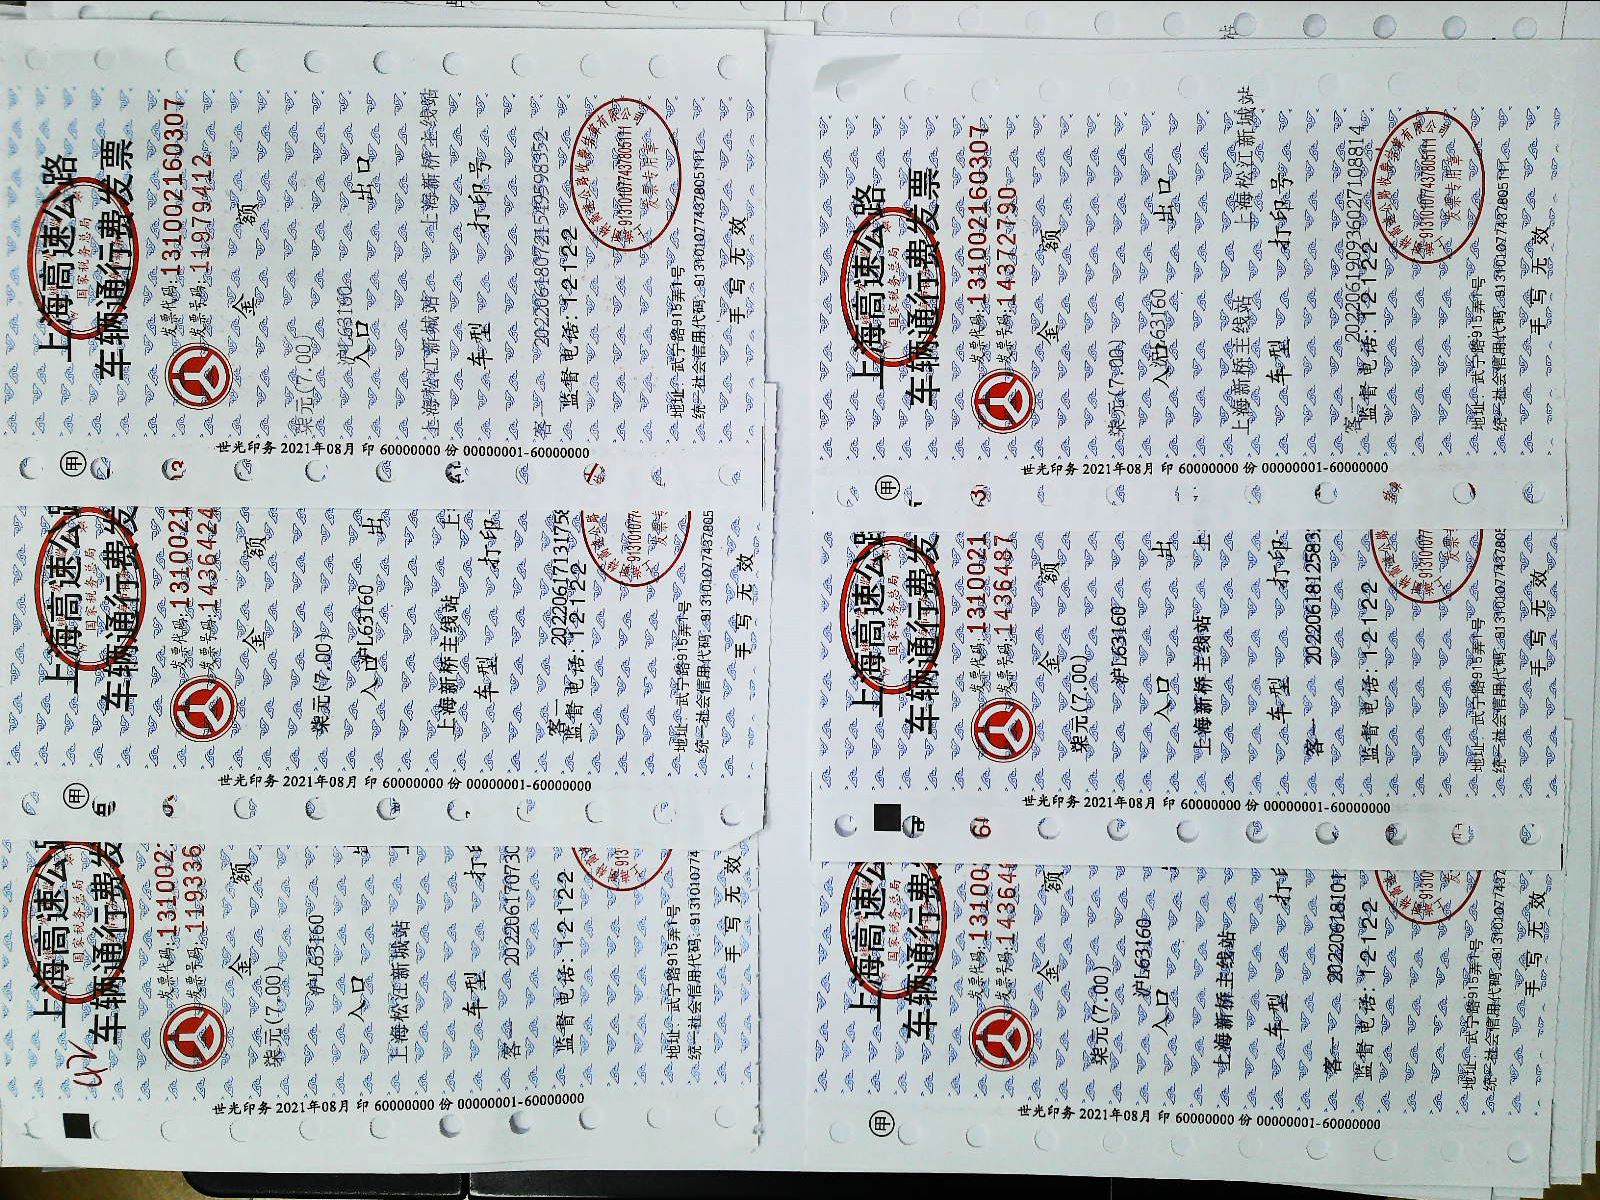 上海高速公路
国家税务总局
车辆通行费发票
发票代码:131002160307
发票号码:11979412
金 额
柒元(7.00)
沪L63160
入口 出口
上海松江新城站 上海新桥主线站
车型 打印号
客一 202206180721549598352
监督电话:12122
地址:武宁路915弄1号
统一社会信用代码:913101077437805111
手 写 无 效
913101077437805111
发票专用章
世光印务 2021年08月 印 60000000 份 00000001-60000000
甲
上海高速公路
国家税务总局
车辆通行费发
发票代码:1310021
发票号码:1436424
金 额
柒元(7.00)
沪L63160
入口 出
上海新桥主线站 上
车型 打印
客一 20220617131758
监督电话:12122
地址:武宁路915弄1号
统一社会信用代码:913101077437805
手 写 无 效
世光印务 2021年08月 印 60000000 份 00000001-60000000
甲
上海高速公
国家税务总局
车辆通行费发
发票代码:131002
发票号码:119336
金 额
柒元(7.00)
沪L63160
入口
上海松江新城站
车型 打印
客一 202206170730
监督电话:12122
地址:武宁路915弄1号
统一社会信用代码:9131010774
手 写 无 效
世光印务 2021年08月 印 60000000 份 00000001-60000000
42
上海高速公路
国家税务总局
车辆通行费发票
发票代码:131002160307
发票号码:14372790
金 额
柒元(7.00)
沪L63160
入口 出口
上海新桥主线站 上海松江新城站
车型 打印号
客一 202206190936027108814
监督电话:12122
地址:武宁路915弄1号
统一社会信用代码:913101077437805111
手 写 无 效
913101077437805111
发票专用章
世光印务 2021年08月 印 60000000 份 00000001-60000000
甲
上海高速公路
国家税务总局
车辆通行费发
发票代码:1310021
发票号码:1436487
金 额
柒元(7.00)
沪L63160
入口 出
上海新桥主线站 上
车型 打印
客一 2022061812583
监督电话:12122
地址:武宁路915弄1号
统一社会信用代码:91310107743780
手 写 无 效
世光印务 2021年08月 印 60000000 份 00000001-60000000
上海高速公
国家税务总局
车辆通行费发
发票代码:131002
发票号码:143648
金 额
柒元(7.00)
沪L63160
入口
上海新桥主线站
车型 打
客一 2022061810
监督电话:12122
地址:武宁路915弄1号
统一社会信用代码:9131010774
手 写 无 效
世光印务 2021年08月 印 60000000 份 00000001-60000000
甲